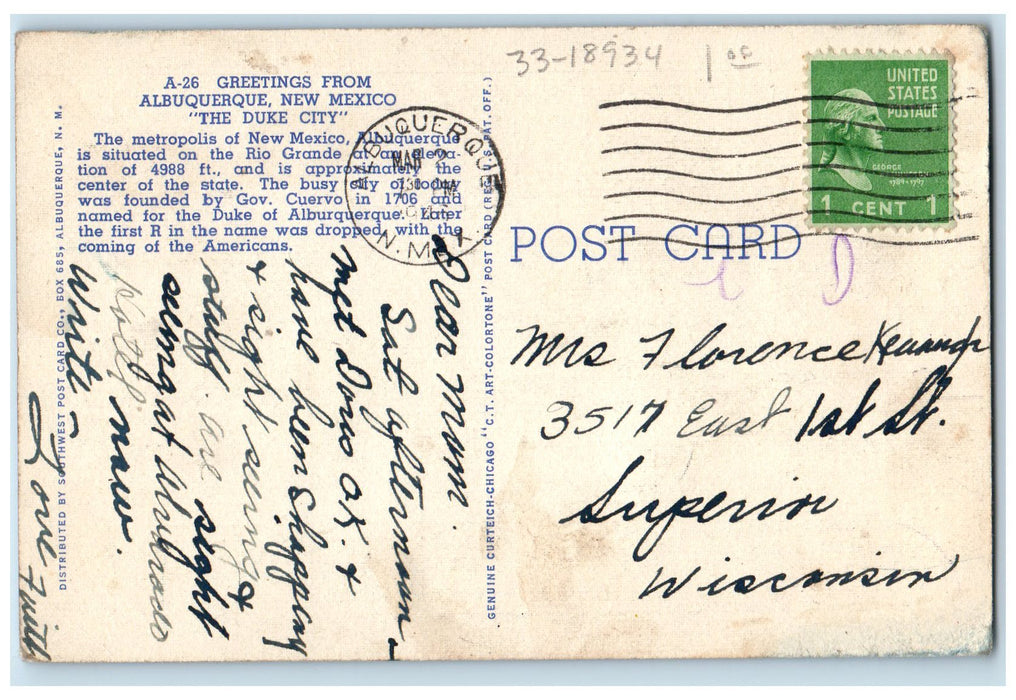 33-18934 1 of
A-26 GREETINGS FROM
ALBUQUERQUE, NEW MEXICO
"THE DUKE CITY"
The metropolis of New Mexico, Albuquerque
is situated on the Rio Grande at an eleva-
tion of 4988 ft., and is approximately the
center of the state. The busy city of today
was founded by Gov. Cuervo in 1706 and
named for the Duke of Alburquerque. Later
the first R in the name was dropped with the
coming of the Americans.
DISTRIBUTED BY SOUTHWEST POST CARD CO., BOX 685, ALBUQUERQUE, N. M.
GENUINE CURTEICH-CHICAGO "C.T. ART-COLORTONE" POST CARD (REG. U.S. PAT. OFF.)
ALBUQUERQUE
MAR 2
730 PM
N. MEX.
UNITED
STATES
POSTAGE
GEORGE
WASHINGTON
1789-1797
1 CENT 1
POST CARD
Dear Mom.
Sat afternoon
met Doro ox. &
have been Shopping
& sight seeing &
stuff. are sight
seeing at
now.
Write
Love Faith
Mrs Florence
3517 East 1st St.
Superior
Wisconsin